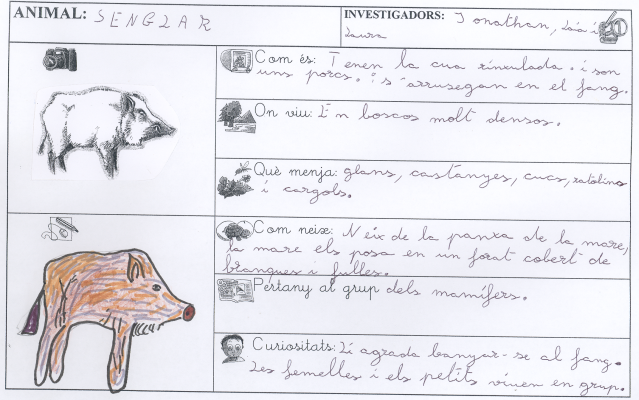 ANIMAL: SENGLAR
INVESTIGADORS: Jonathan, Laia i
Laura
Com és: Tenen la cua rinxulada. i son
uns porcs. i s'arrusegan en el fang.
On viu: En boscos molt densos.
Què menja: glans, castanyes, cucs, ratolins
i cargols.
Com neix: Neix de la panxa de la mare,
la mare els posa en un forat cobert de
branques i fulles.
Pertany al grup dels mamífers.
Curiositats: Li agrada banyar-se al fang.
Les femelles i els petits viuen en grup.